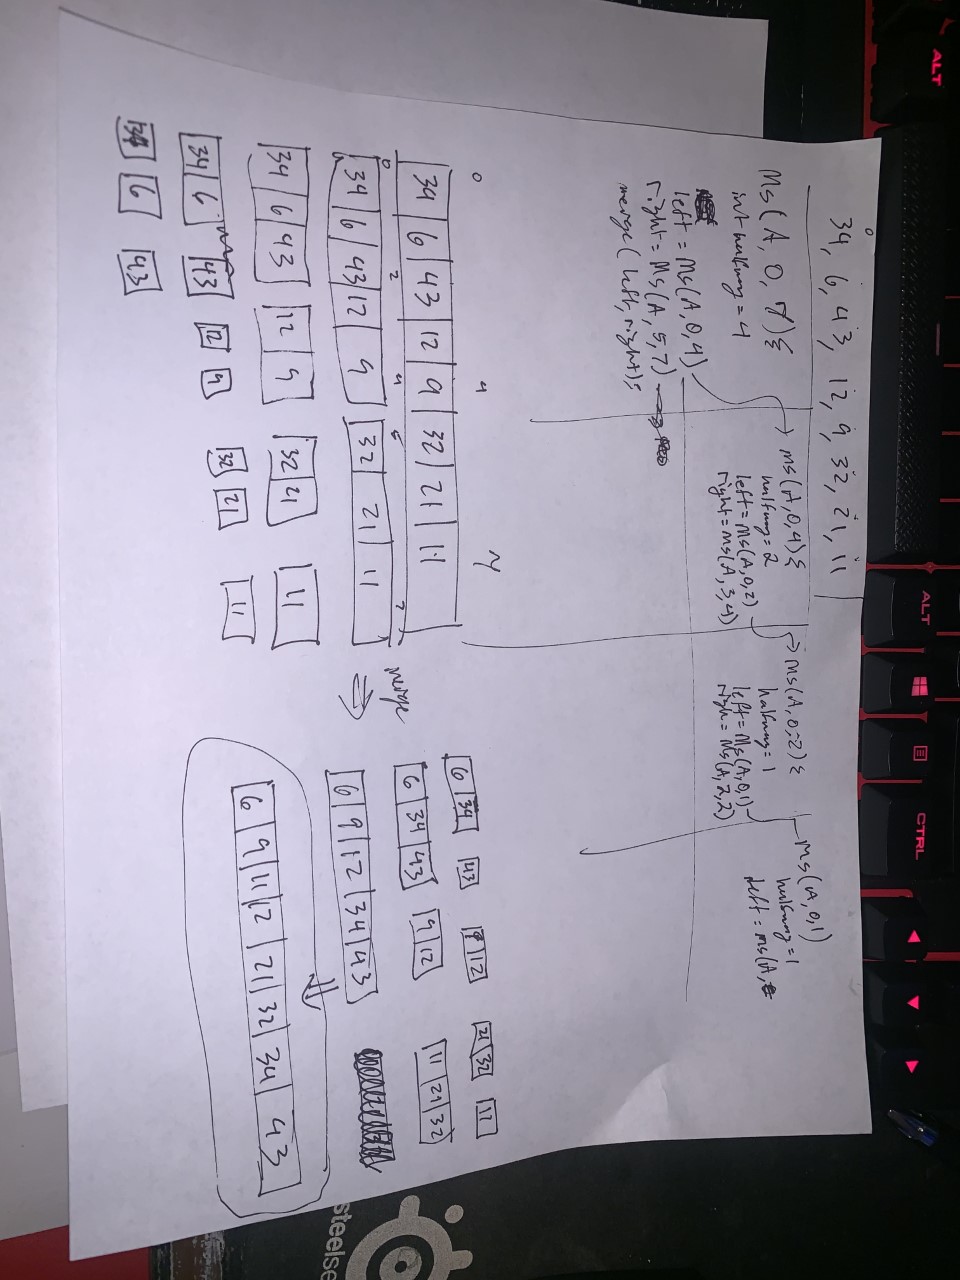 ALT
ALT
CTRL
0
34, 6, 43, 12, 9, 32, 21, 11
Ms(A, 0, 7){
int halfway = 4
left = Ms(A, 0, 4)
right = Ms(A, 5, 7)
merge( left, right);
ms(A, 0, 4){
halfway = 2
left = Ms(A, 0, 2)
right = Ms(A, 3, 4)
Ms(A, 0, 2){
halfway = 1
left = Ms(A, 0, 1)
righ = Ms(A, 2, 2)
Ms(A, 0, 1)
halfway = 1
left = Ms(A,
0 4 7
34 6 43 12 9 32 21 11
0 2 4 5 7
34 6 43 12 9 32 21 11
34 6 43 12 9 32 21 11
34 6 43 12 9 32 21 11
34 6 43
merge
6 34 43 9 12 21 32 11
6 34 43 9 12 11 21 32
6 9 12 34 43
6 9 11 12 21 32 34 43
steelse